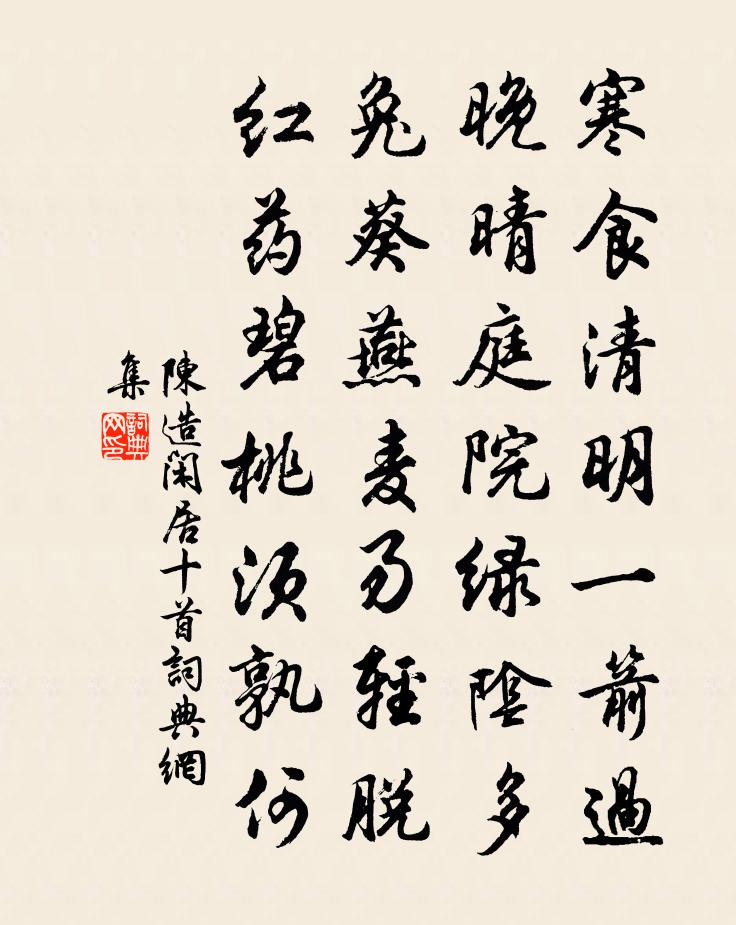 寒食清明一箭過
晚晴庭院绿陰多
兔葵燕麦易輕脱
红药碧桃须孰何
陳造閑居十首詞典網
集
詞典
网印